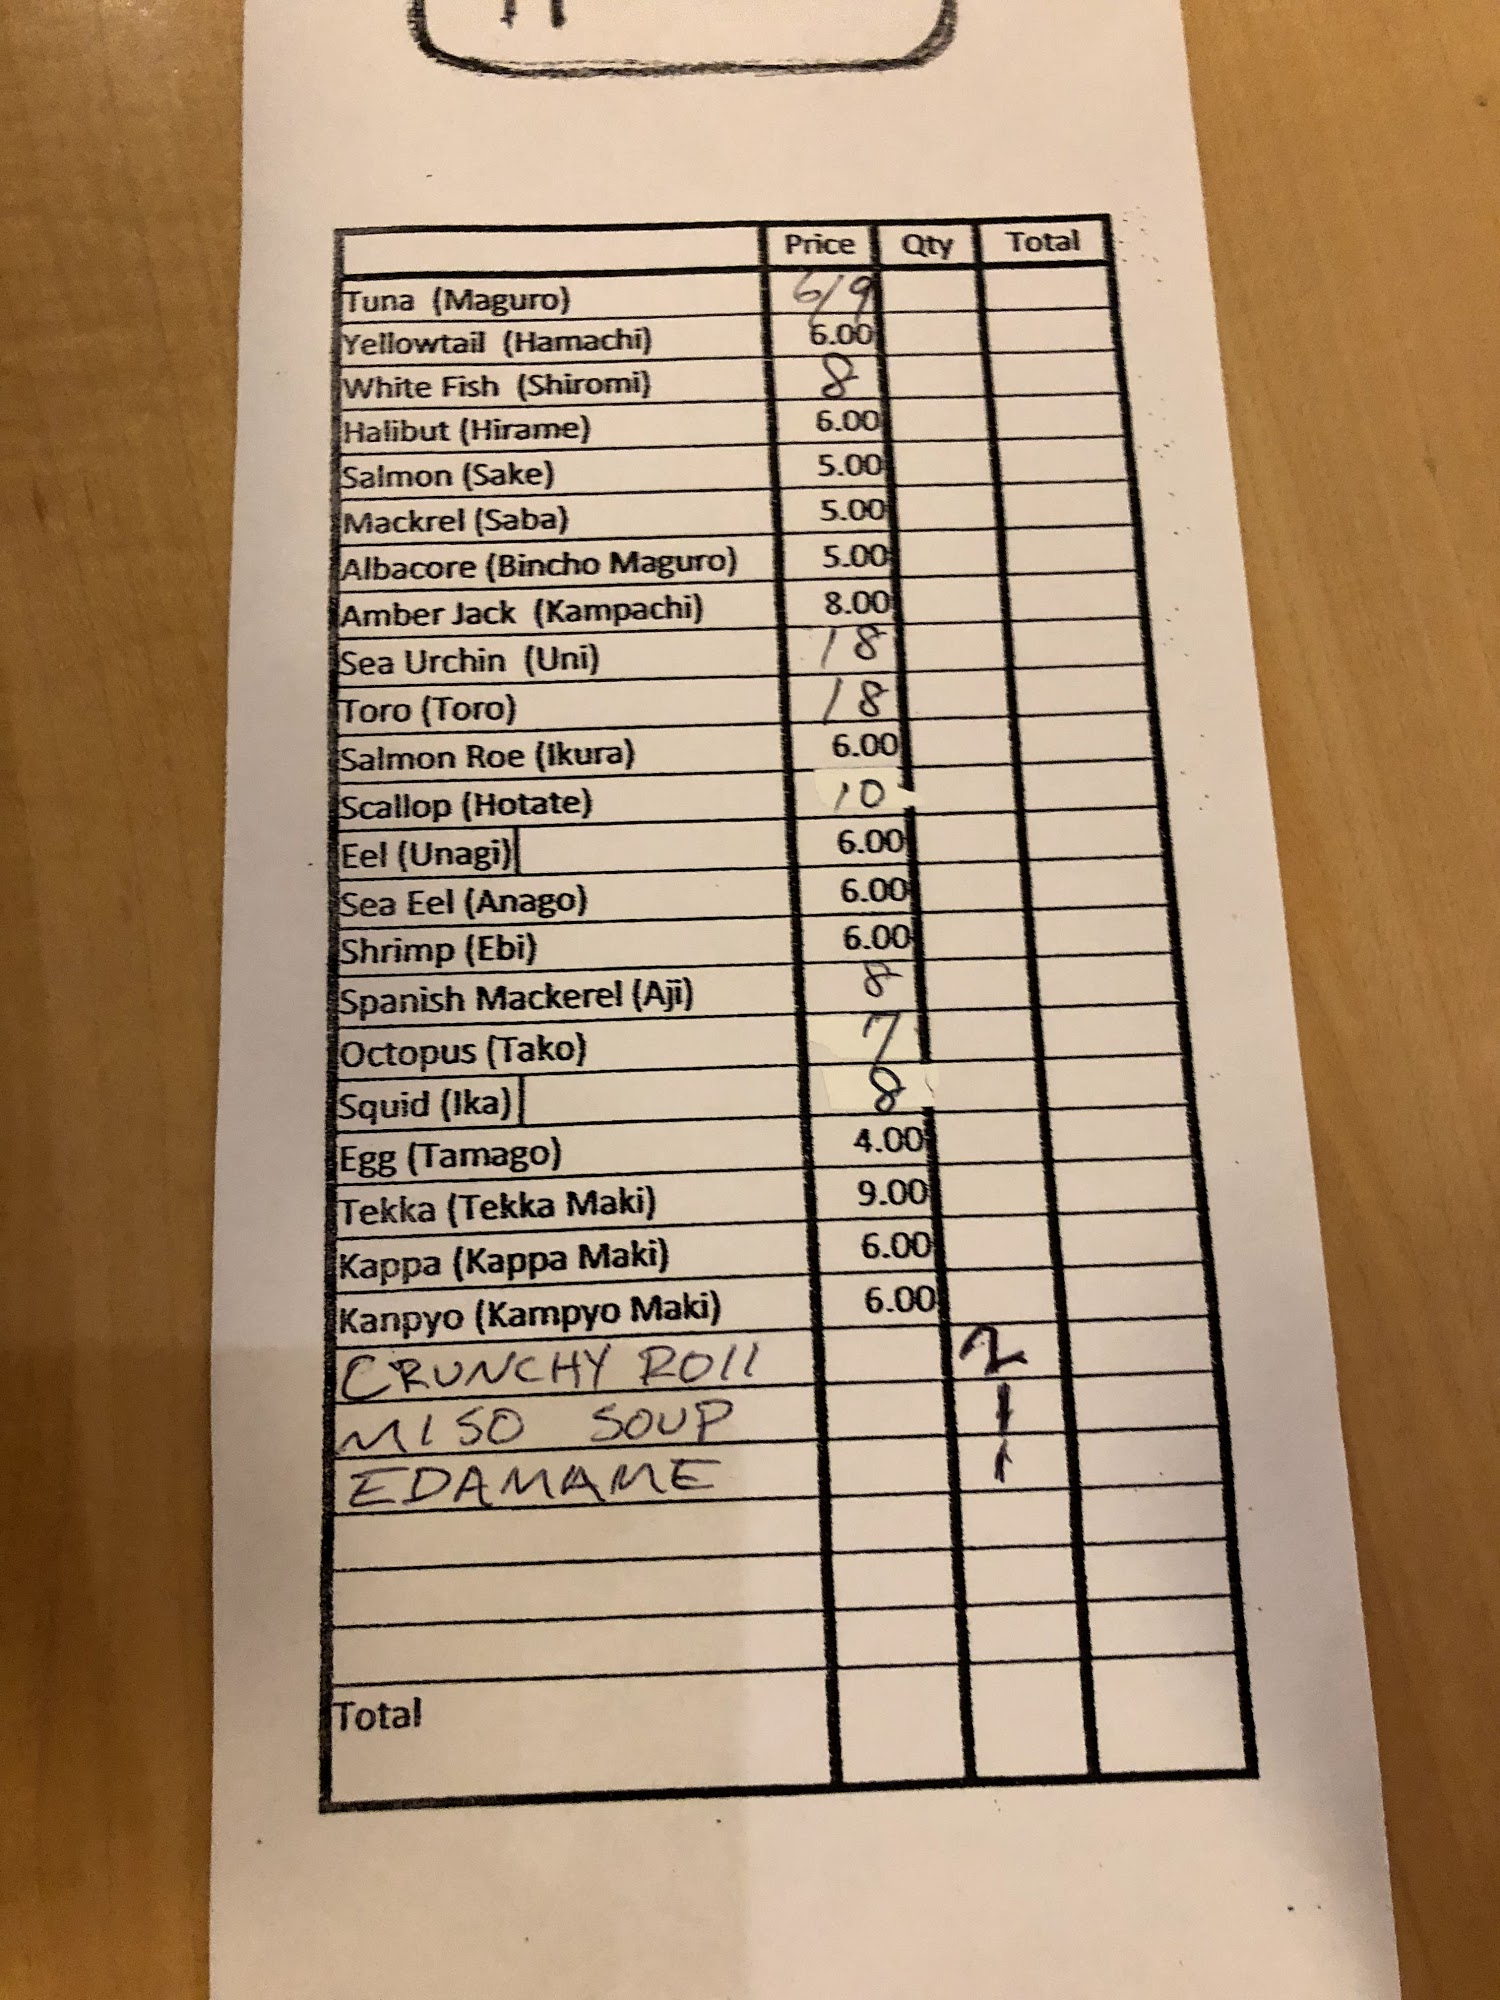 Price Qty Total
Tuna (Maguro) 6/9
Yellowtail (Hamachi) 6.00
White Fish (Shiromi) 8
Halibut (Hirame) 6.00
Salmon (Sake) 5.00
Mackrel (Saba) 5.00
Albacore (Bincho Maguro) 5.00
Amber Jack (Kampachi) 8.00
Sea Urchin (Uni) 18
Toro (Toro) 18
Salmon Roe (Ikura) 6.00
Scallop (Hotate) 10
Eel (Unagi) 6.00
Sea Eel (Anago) 6.00
Shrimp (Ebi) 6.00
Spanish Mackerel (Aji) 8
Octopus (Tako) 7
Squid (Ika) 8
Egg (Tamago) 4.00
Tekka (Tekka Maki) 9.00
Kappa (Kappa Maki) 6.00
Kanpyo (Kampyo Maki) 6.00
CRUNCHY ROll 2
MISO SOUP 1
EDAMAME 1
Total